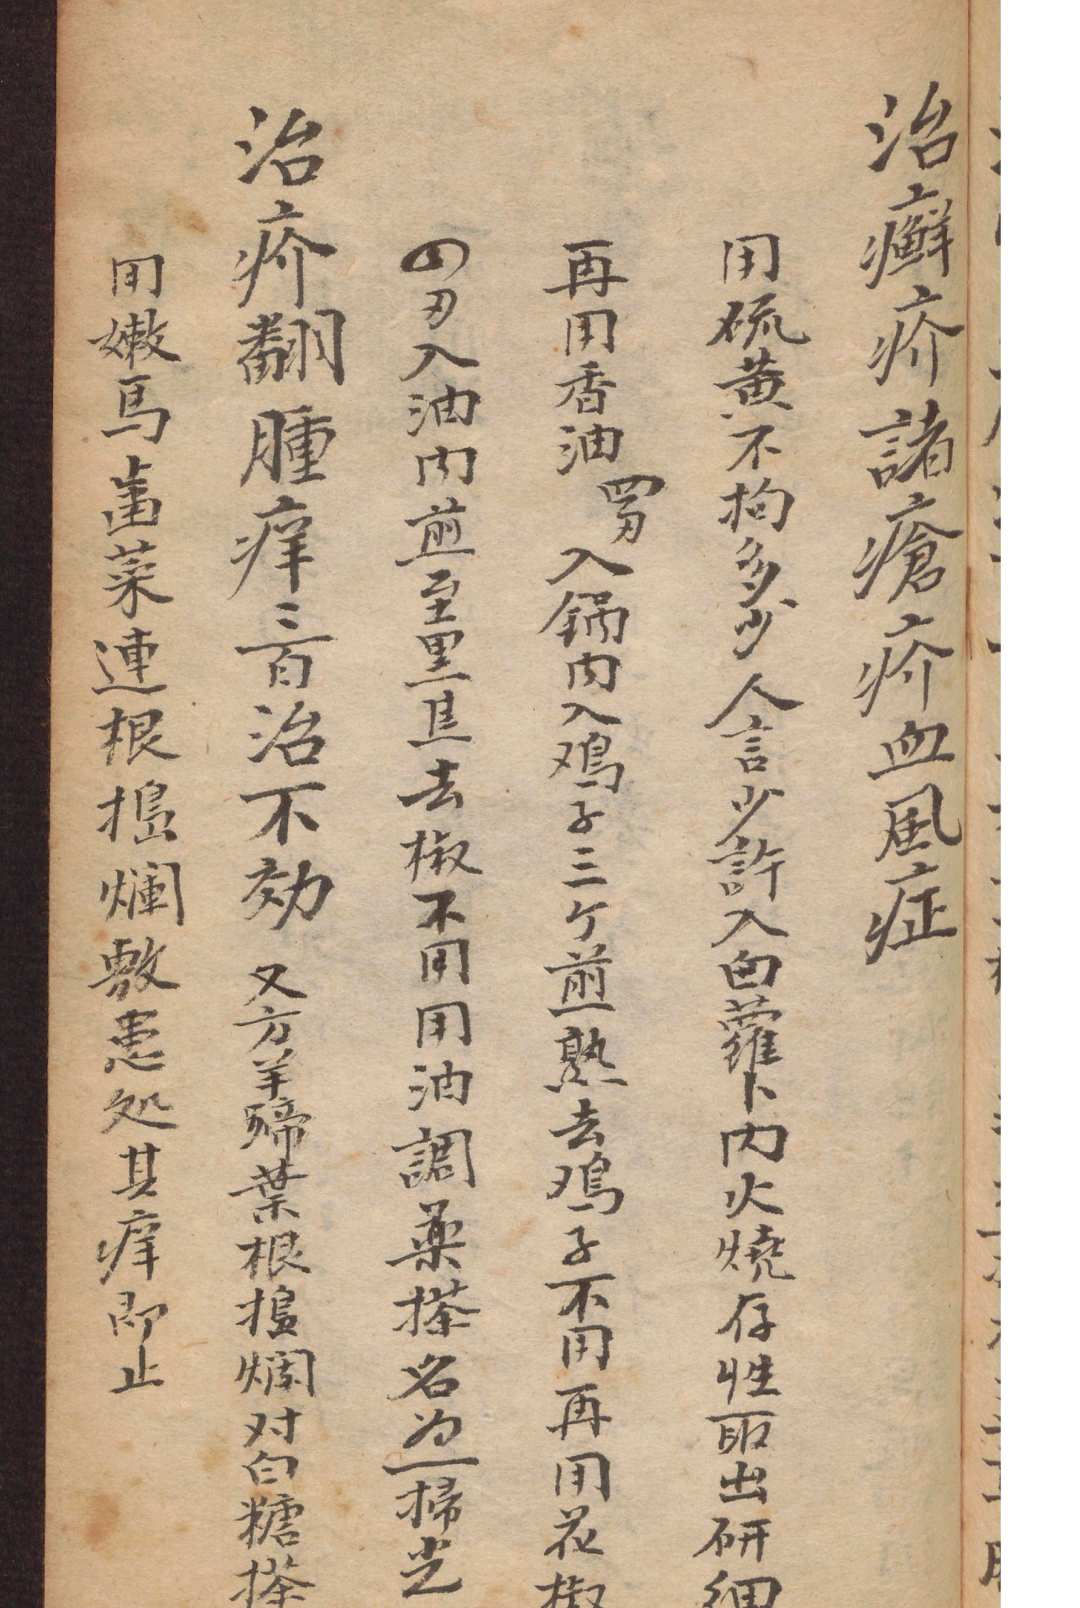 治癬疥諸瘡疥血風症
用硫黄不拘多少人言少許入白蘿卜内火燒存性取出研細
再用香油四刄入鍋内入鸡子三ケ煎熟去鸡子不用再用花椒
四刄入油内煎至黑且去椒不用用油調薬搽名为一掃光
治疥翻腫痒三百治不効又方羊蹄葉根搗爛对白糖搽
用嫩馬齒菜連根搗爛敷患处其痒即止